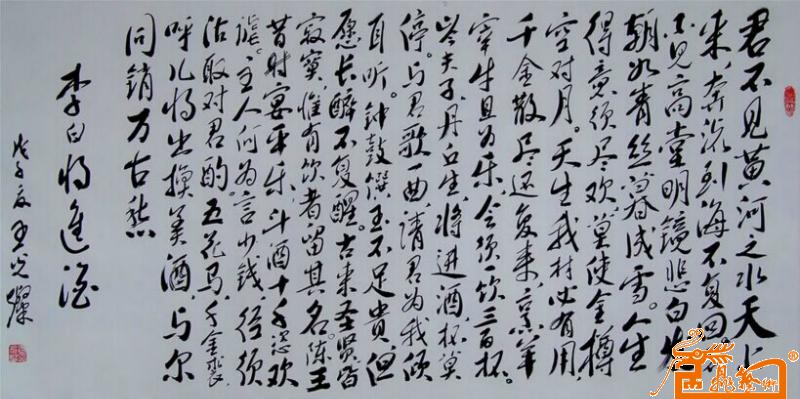 君不见黄河之水天上
来,奔流到海不复回君
不见高堂明镜悲白发
朝如青丝暮成雪。人生
得意须尽欢,莫使金樽
空对月。天生我材必有用,
千金散尽还复来,烹羊
宰牛且为乐,会须一饮三百杯。
岑夫子,丹丘生,将进酒,杯莫
停。与君歌一曲,请君为我倾
耳听。钟鼓馔玉不足贵,但
愿长醉不复醒。古来圣贤皆
寂寞,惟有饮者留其名。陈王
昔时宴平乐,斗酒十千恣欢
谑。主人何为言少钱,径须
沽取对君酌。五花马,千金裘,
呼儿将出换美酒,与尔
同销万古愁
李白将進酒
戊子夏王光燦